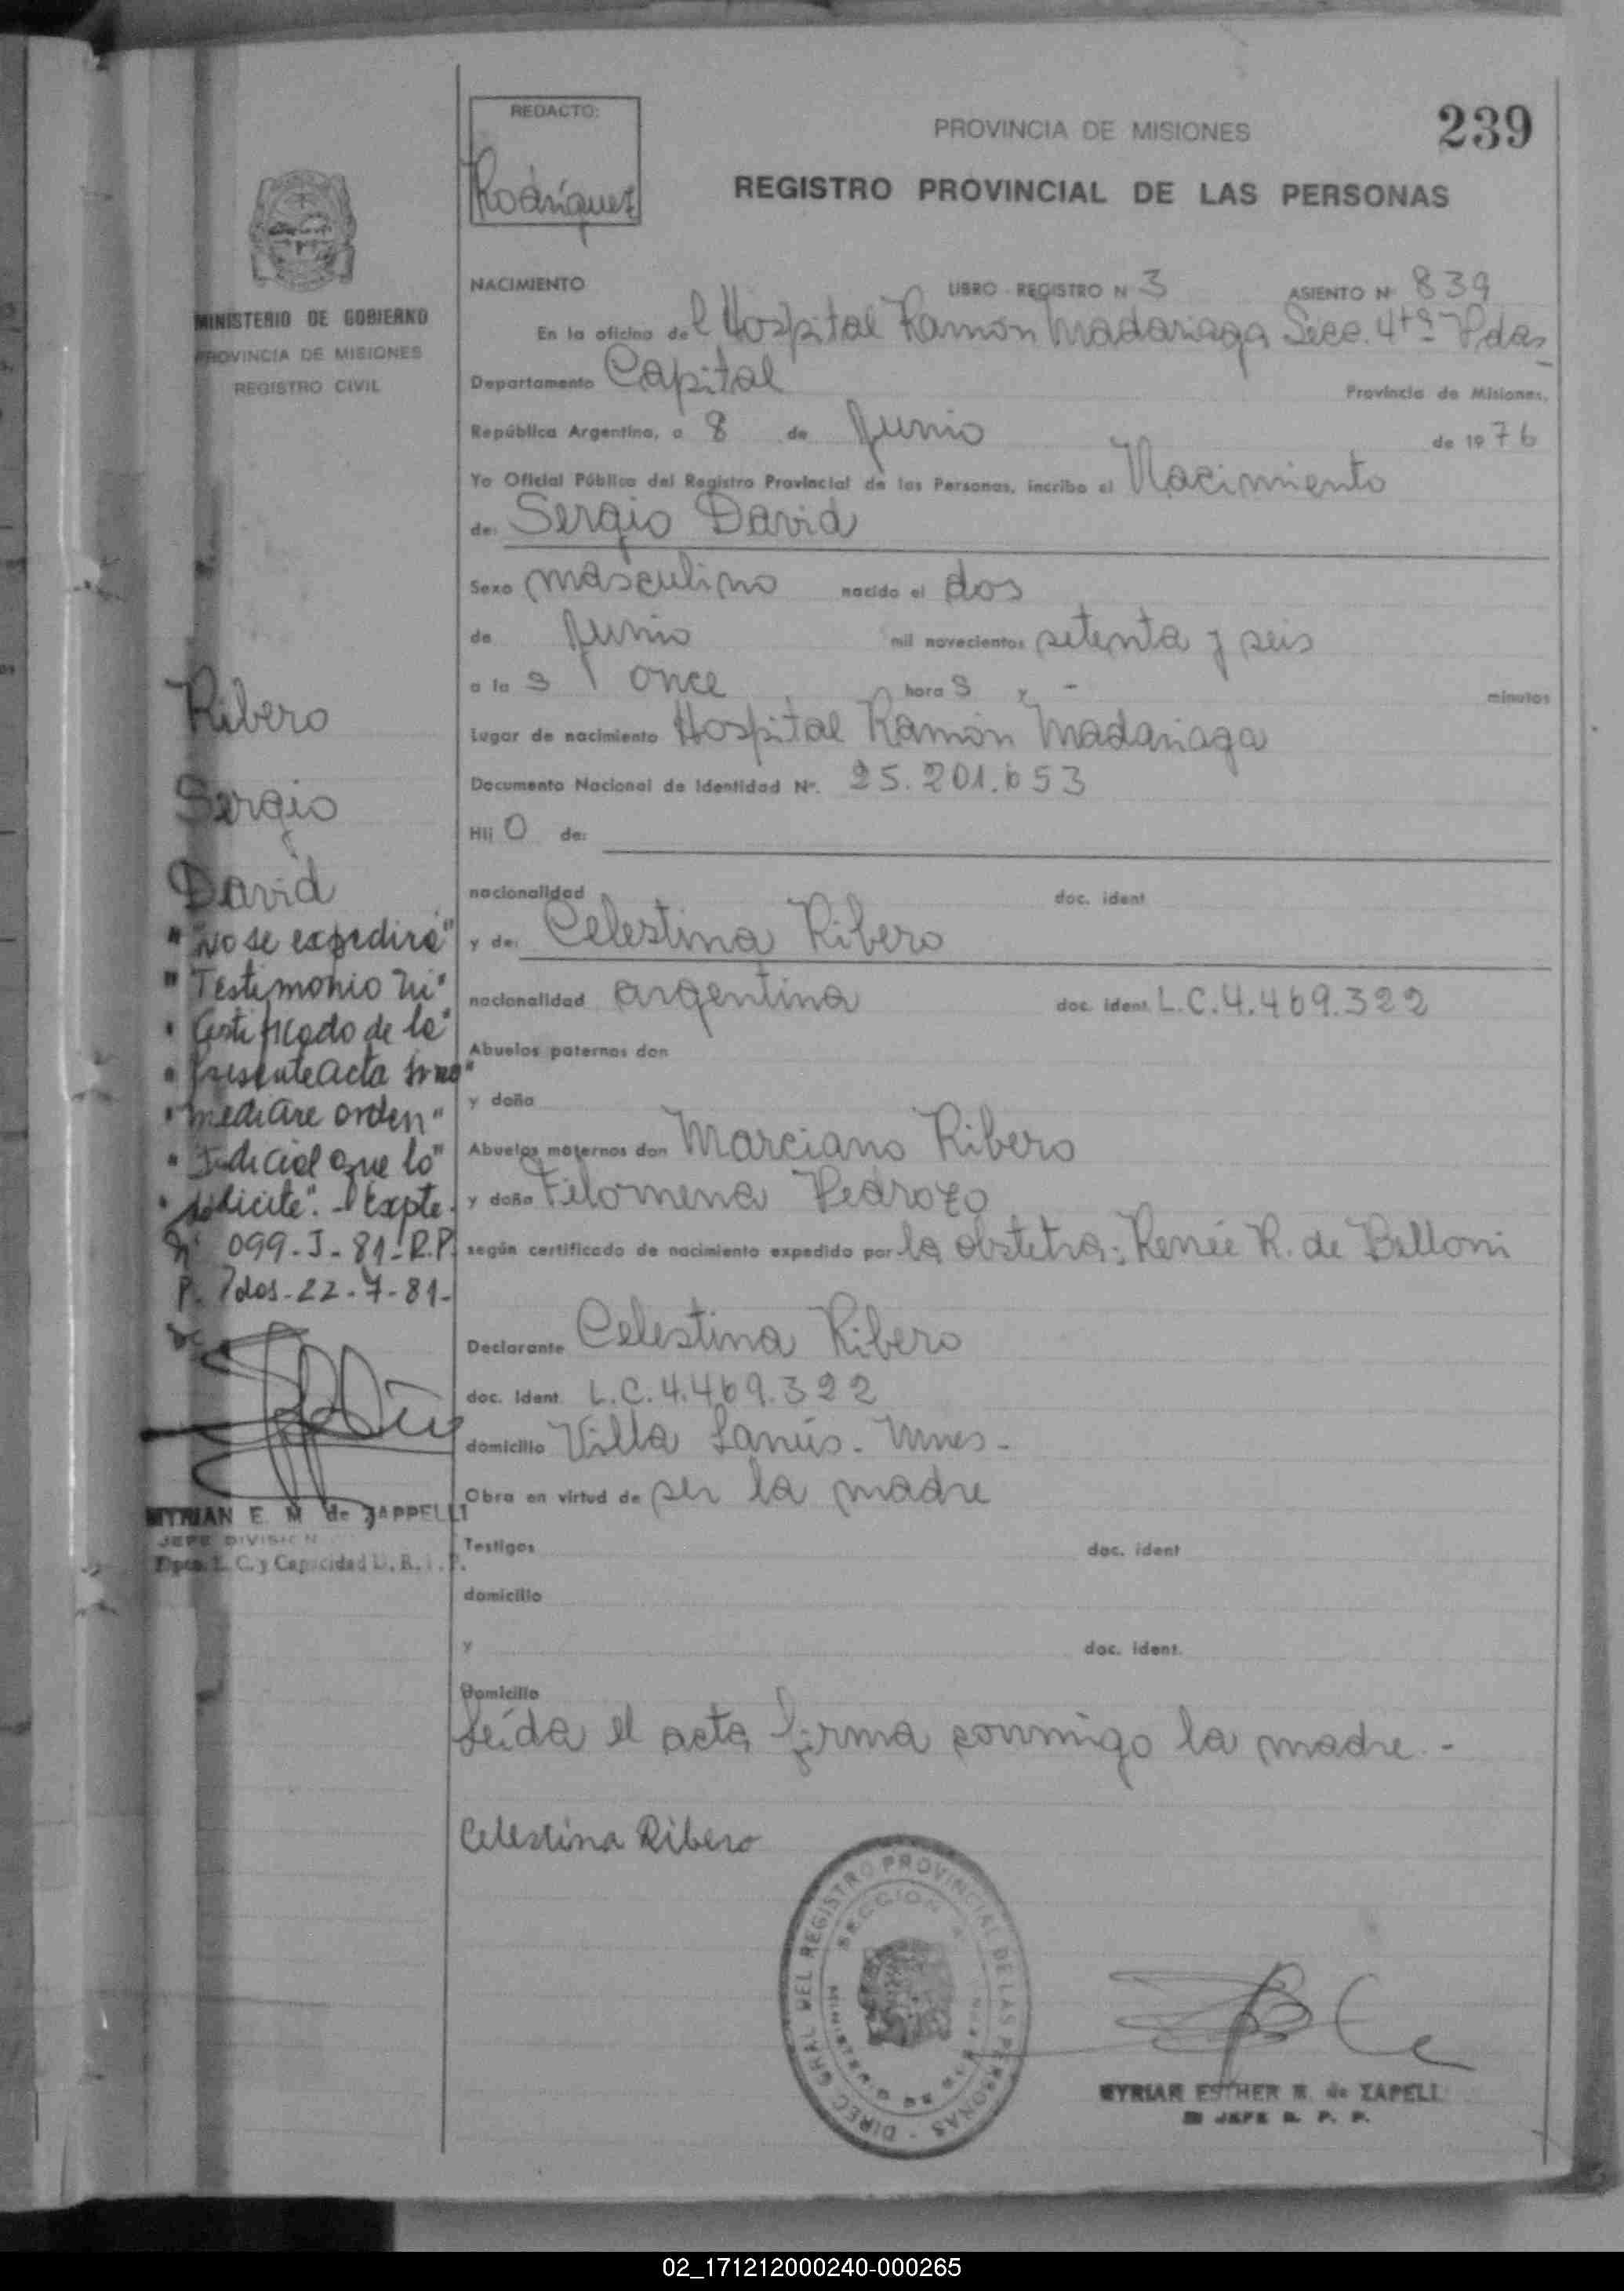 239
REDACTO:
Rodríguez
PROVINCIA DE MISIONES
REGISTRO PROVINCIAL DE LAS PERSONAS
MINISTERIO DE GOBIERNO
PROVINCIA DE MISIONES
REGISTRO CIVIL
NACIMIENTO LIBRO REGISTRO N 3 ASIENTO Nº 839
En la oficina del Hospital Ramón Madariaga Secc. 4ta Pdas
Departamento Capital Provincia de Misiones,
República Argentina, a 8 de Junio de 1976
Yo Oficial Público del Registro Provincial de las Personas, incribo el Nacimiento
de: Sergio David
Sexo masculino nacido el dos
de Junio mil novecientos setenta y seis
a las once horas y - minutos
Lugar de nacimiento Hospital Ramón Madariaga
Documento Nacional de Identidad Nº. 25.201.653
Hijo de:
nacionalidad doc. ident
y de: Celestina Ribero
nacionalidad argentina doc. ident. L.C.4.469.322
Abuelos paternos don
y doña
Abuelos maternos don Marciano Ribero
y doña Filomena Pedrozo
según certificado de nacimiento expedido por la obstetra: Renée R. de Belloni
Declarante Celestina Ribero
doc. Ident. L.C.4.469.322
domicilio Villa Lanús. Mnes-
Obra en virtud de ser la madre
Testigos doc. ident
domicilio
y doc. ident.
Domicilio
Leída el acta firma conmigo la madre.-
Celestina Ribero
Ribero
Sergio
David
"No se expedirá"
"Testimonio ni"
"Certificado de la"
"presente acta sino"
"mediare orden"
"Judicial que lo"
"solicite".- Expte.
Nº 099-J-81-R.P.
P. Pdos-22-7-81-
MYRIAN E. M de ZAPPELLI
JEFE DIVISION
Dpto. E. C. y Capacidad D. R. P. P.
DIREC. GRAL DEL REGISTRO PROVINCIAL DE LAS PERSONAS
SECCION 4
MYRIAN ESTHER M. de ZAPELLI
JEFE R. P. P.
02_171212000240-000265